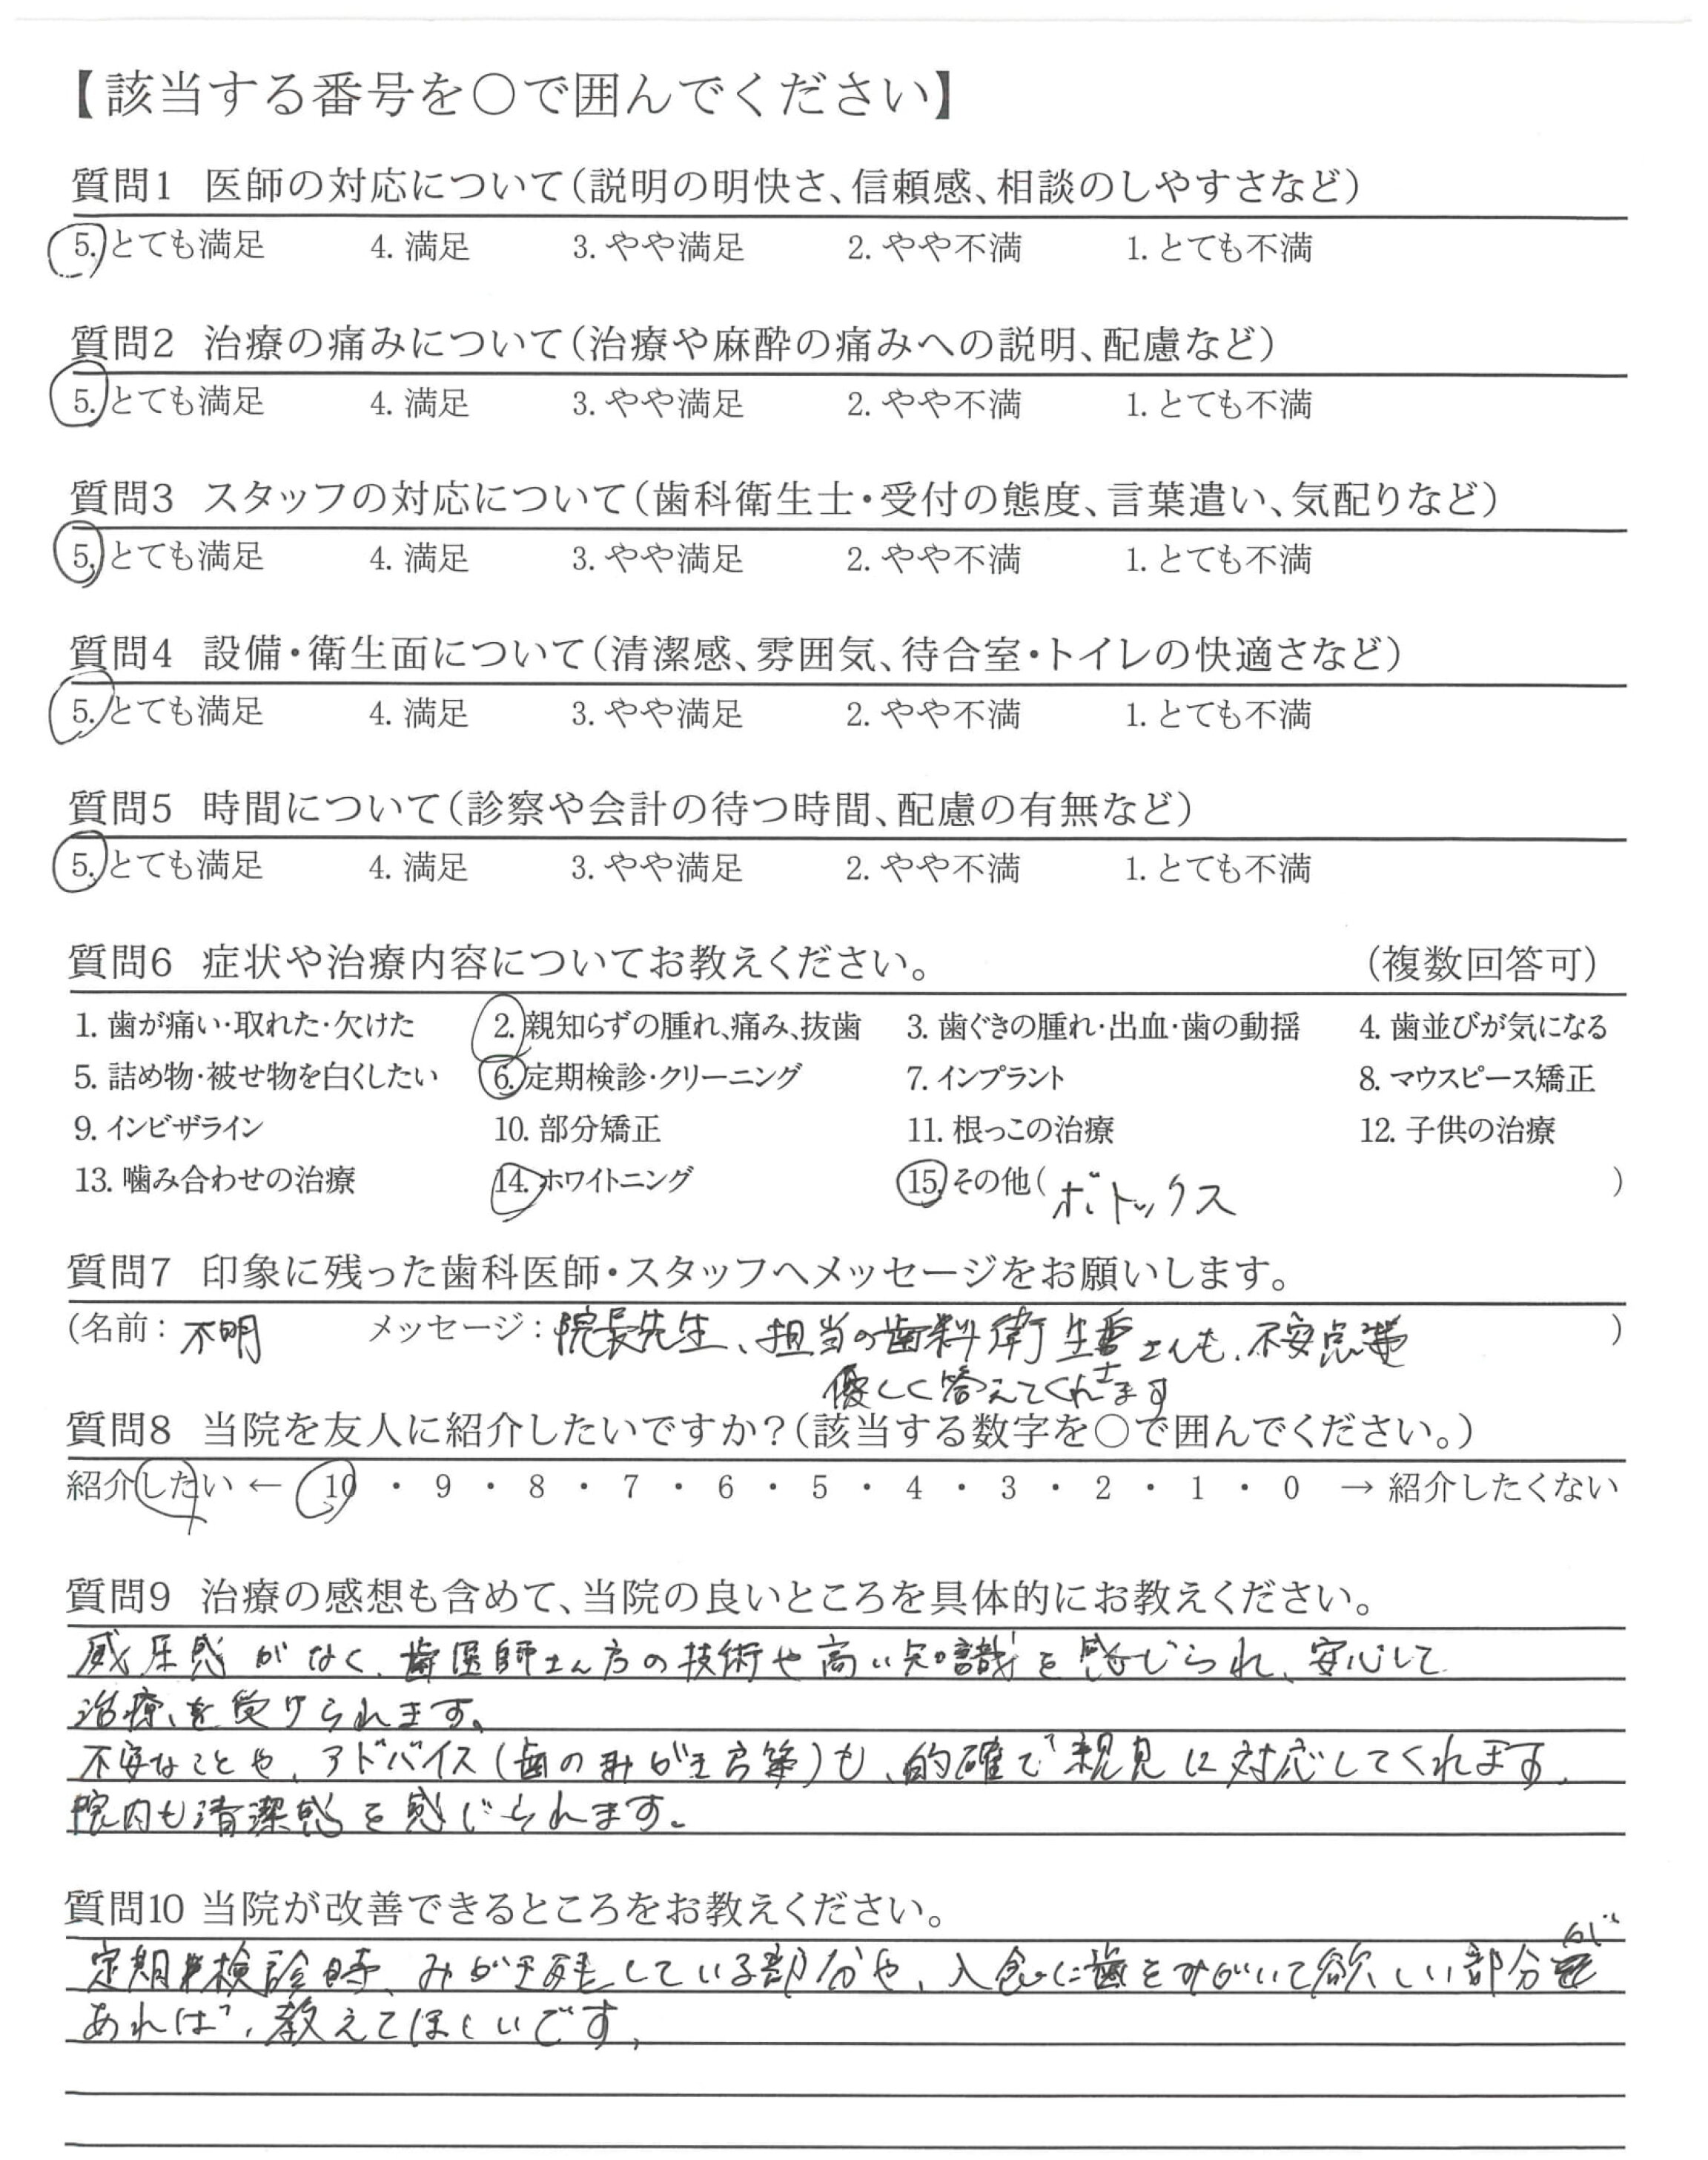 【該当する番号を○で囲んでください】
質問1 医師の対応について(説明の明快さ、信頼感、相談のしやすさなど)
5. とても満足 4. 満足 3. やや満足 2. やや不満 1. とても不満
質問2 治療の痛みについて(治療や麻酔の痛みへの説明、配慮など)
5. とても満足 4. 満足 3. やや満足 2. やや不満 1. とても不満
質問3 スタッフの対応について(歯科衛生士・受付の態度、言葉遣い、気配りなど)
5. とても満足 4. 満足 3. やや満足 2. やや不満 1. とても不満
質問4 設備・衛生面について(清潔感、雰囲気、待合室・トイレの快適さなど)
5. とても満足 4. 満足 3. やや満足 2. やや不満 1. とても不満
質問5 時間について(診察や会計の待つ時間、配慮の有無など)
5. とても満足 4. 満足 3. やや満足 2. やや不満 1. とても不満
質問6 症状や治療内容についてお教えください。 (複数回答可)
1. 歯が痛い・取れた・欠けた 2. 親知らずの腫れ、痛み、抜歯 3. 歯ぐきの腫れ・出血・歯の動揺 4. 歯並びが気になる
5. 詰め物・被せ物を白くしたい 6. 定期検診・クリーニング 7. インプラント 8. マウスピース矯正
9. インビザライン 10. 部分矯正 11. 根っこの治療 12. 子供の治療
13. 噛み合わせの治療 14. ホワイトニング 15. その他(ボトックス)
質問7 印象に残った歯科医師・スタッフへメッセージをお願いします。
(名前:不明 メッセージ:院長先生、担当の歯科衛生士さんも、不安点等)
優しく答えてくれます
質問8 当院を友人に紹介したいですか?(該当する数字を○で囲んでください。)
紹介したい ← 10 ・ 9 ・ 8 ・ 7 ・ 6 ・ 5 ・ 4 ・ 3 ・ 2 ・ 1 ・ 0 → 紹介したくない
質問9 治療の感想も含めて、当院の良いところを具体的にお教えください。
威圧感がなく、歯医師さん方の技術や高い知識を感じられ、安心して
治療を受けられます。
不安なことや、アドバイス(歯のみがき方等)も、的確で親見に対応してくれます。
院内も清潔感を感じられます。
質問10 当院が改善できるところをお教えください。
定期検診時、みがき残している部分や、入念に歯をみがいて欲しい部分が
あれば、教えてほしいです。